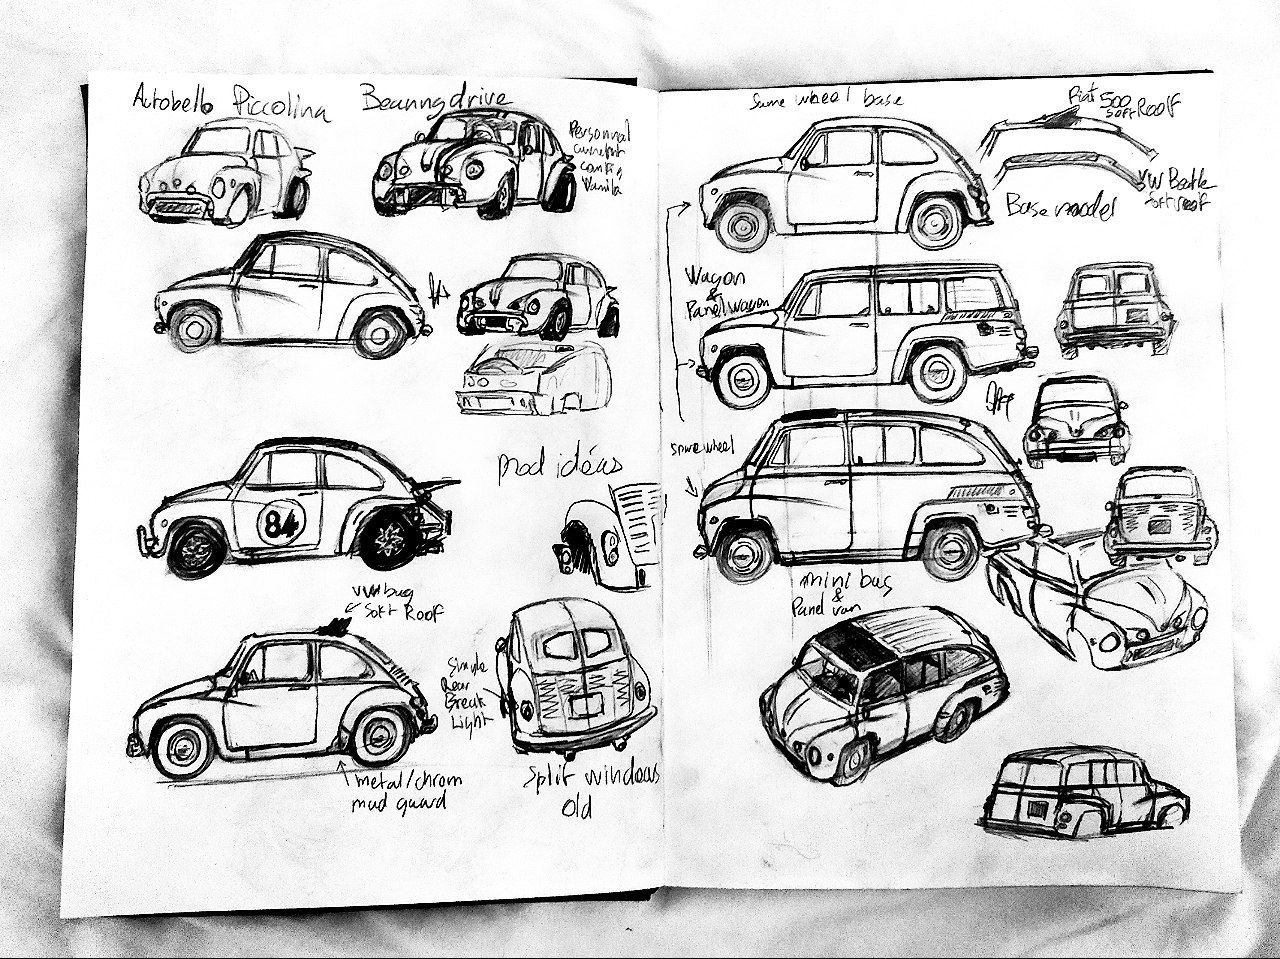 Autobello Piccolina
Beamngdrive
Personnal
config
Vanila
84
mod idéas
vw bug
soft Roof
Simple
Rear
Break
Light
metal/chrom
mud guard
Split windows
old
Same wheel base
Fiat 500
soft Roof
VW Beetle
soft roof
Base model
Wagon
&
Panel wagon
mini bus
&
Panel van